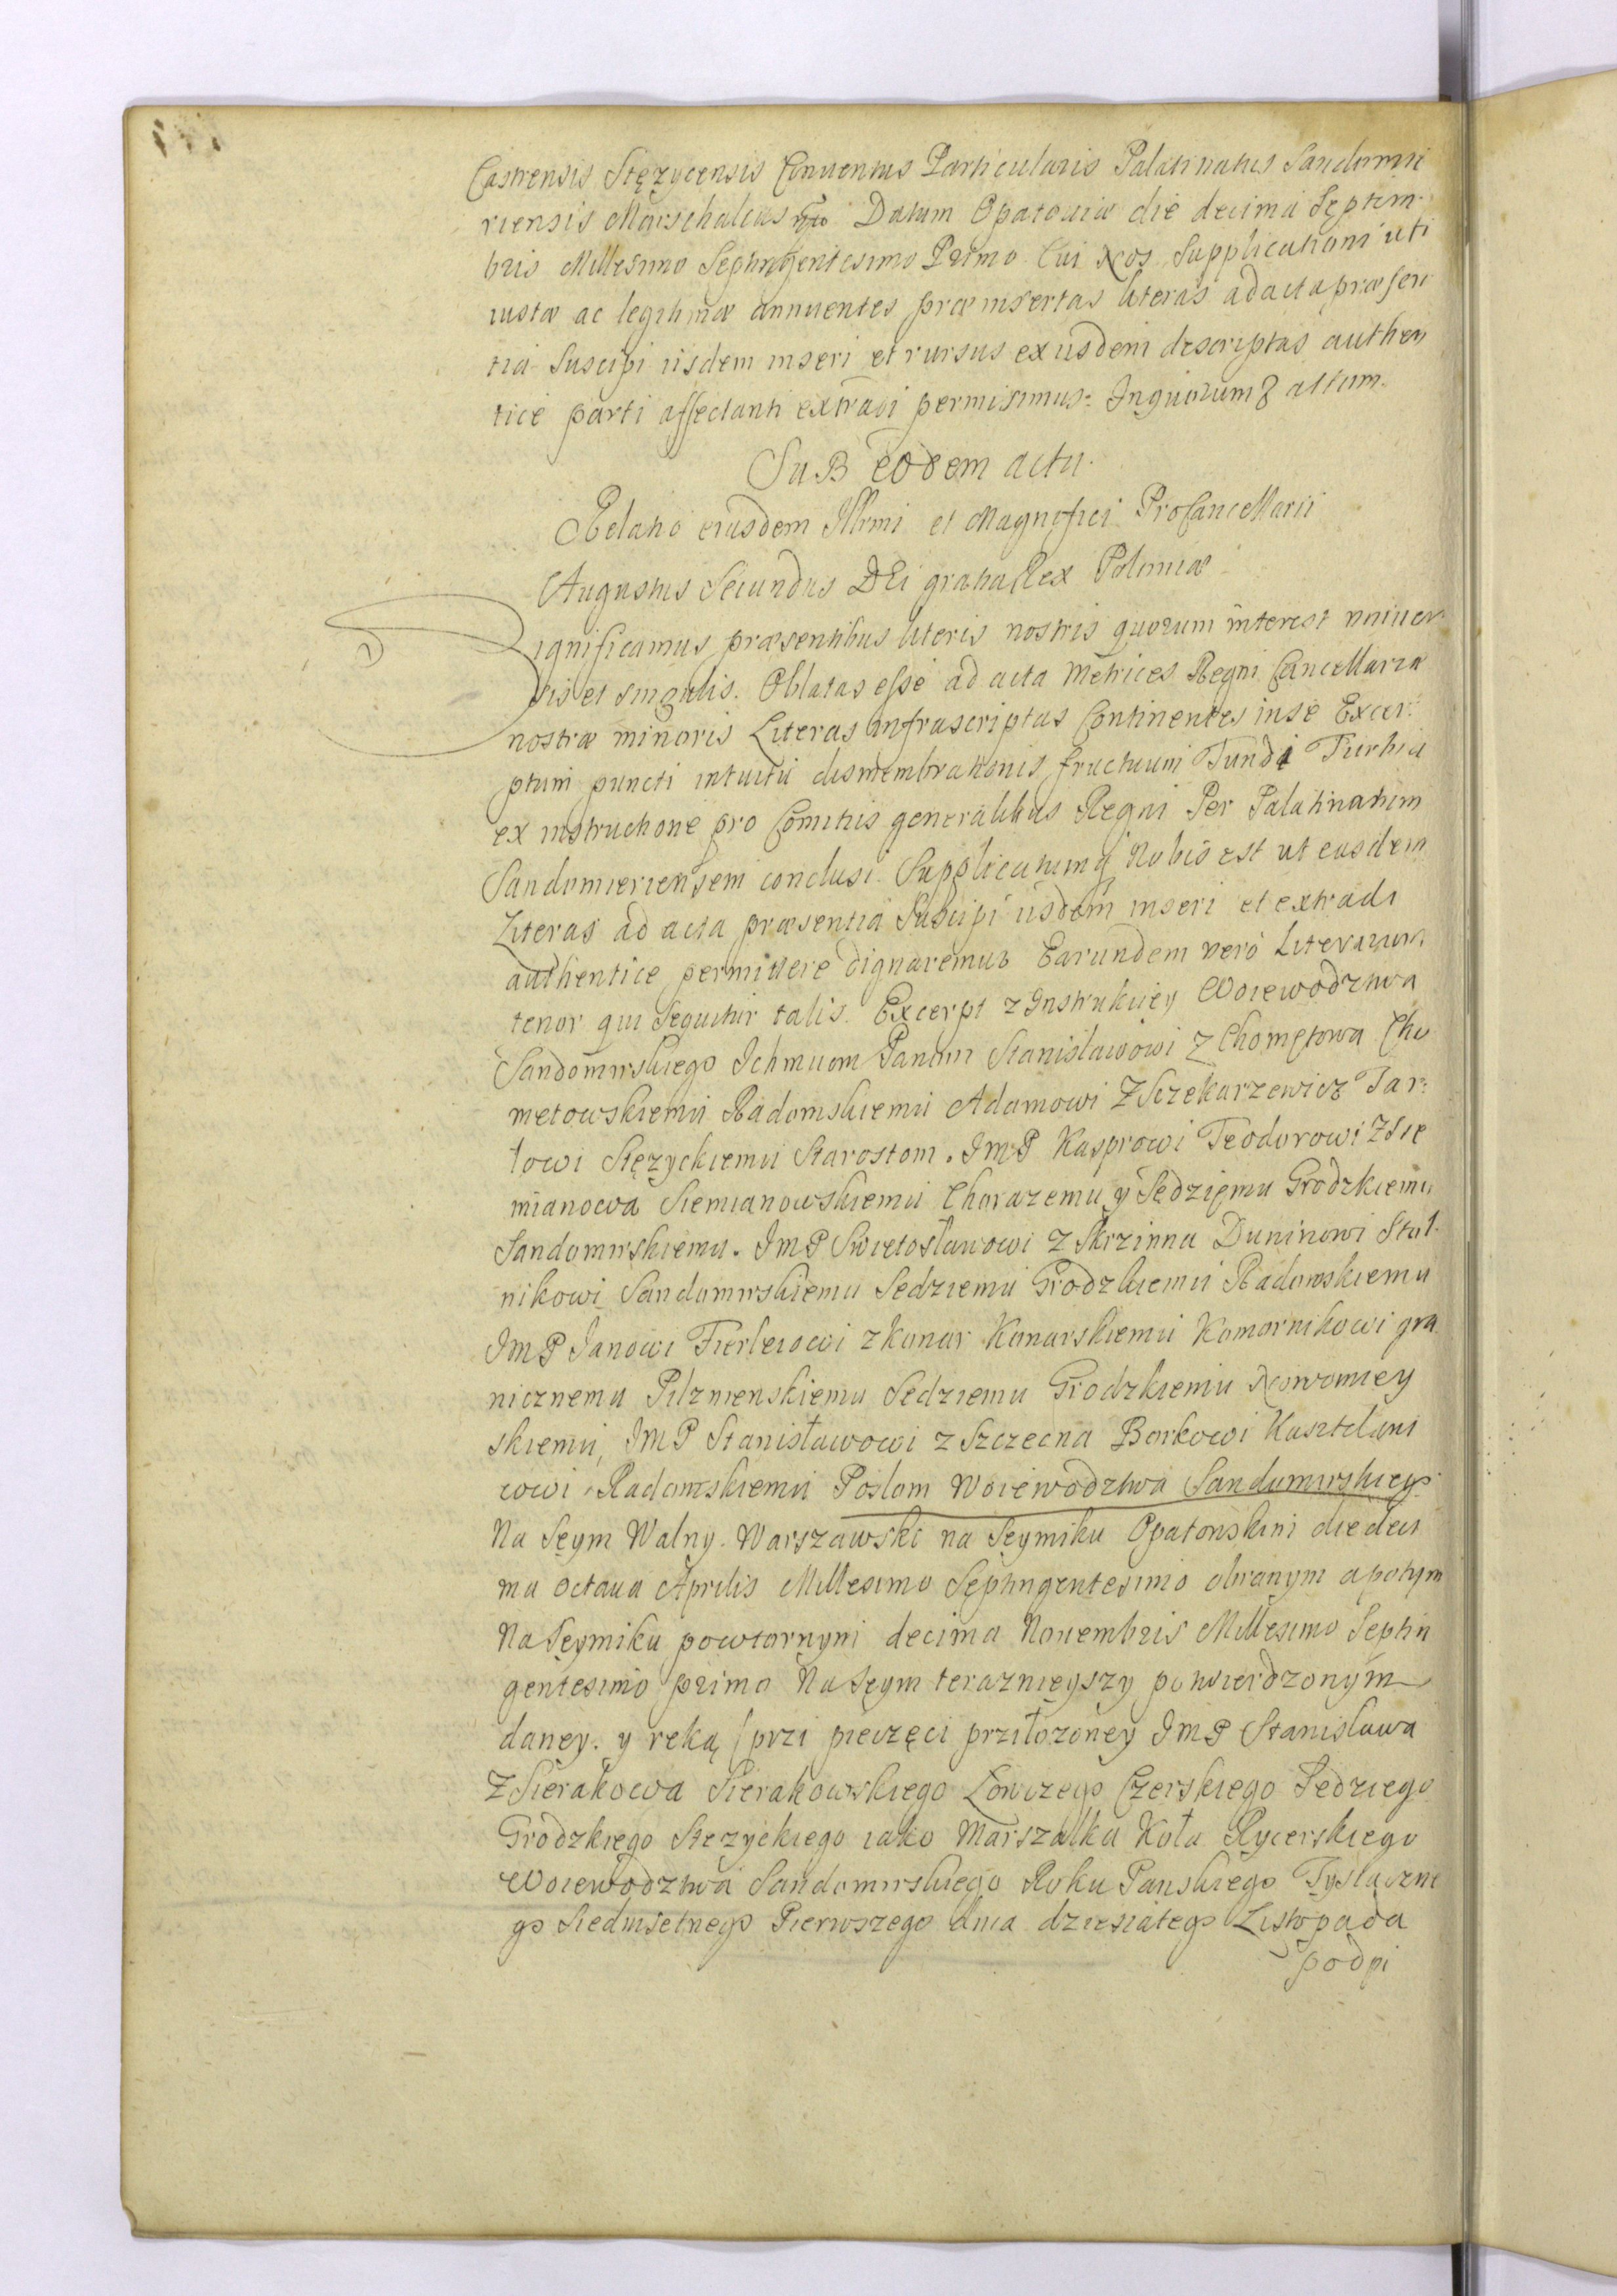 Castrensis Stęzycensis Conuentus Particularis Palatinatus Sandomi
riensis Marschalcus Datum Opatouiæ die decima Septem
bris Millesimo Septingentesimo Primo. Cui Nos Supplicationi uti
iustæ ac legitimæ annuentes præinsertas literas ad acta præsen
tia Suscipi iisdem inseri et rursus ex iisdem descriptas authen
tice parti affectanti extradi permisimus: In quorum altum.
SuB eodem actu.
Relatio eiusdem Illrmi et Magnifici ProCancellarii
Augustus Secundus DEi gratia Rex Poloniæ
Significamus præsentibus literis nostris quorum interest vniuer
sis et singulis. Oblatas esse ad acta Metrices Regni Cancellariæ
nostræ minoris Literas infrascriptas Continentes in se Excer:
ptum puncti intuitu dismembrationis fructuum Fundi Turbia
ex instructione pro Comitiis generalibus Regni Per Palatinatum
Sandomieriensem conclusi. Supplicatumq Nobis est ut easdem
Literas ad acta præsentia Suscipi iisdem inseri et extradi
authentice permittere dignaremur Earundem vero Literarum
tenor qui Sequitur talis. Excerpt z Instrukcyey Woiewodztwa
Sandomirskiego Ichmciom Panom Stanisławowi z Chomętowa Cho
metowskiemu Radomskiemu Adamowi Z Sczekarzewicz Tar:
łowi Stęzyckiemu Starostom. JmP Kasprowi Teodorowi Z Sie
mianowa Siemianowskiemu Chorazemu y Sędzięmu Grodzkiemu
Sandomirskiemu. JmP Swietosławowi z Skrzinna Duninowi Stol
nikowi Sandomirskiemu Sedziemu Grodzkiemu Radomskiemu
JmP Janowi Firleiowi z Konar Konarskiemu Komornikowi gra
nicznemu Pilznienskiemu Sedziemu Grodzkiemu Nowomiey
skiemu, JmP Stanisławowi z Szczecna Borkowi Kasztelani
cowi Radomskiemu Posłom Woiewodztwa Sandomirskiego
Na Sęym Walny. Warszawski na Sęymiku Opatowskim die deci
ma octaua Aprilis Millesimo Septingentesimo obranym a potym
Na Sęymiku powtornym decima Nouembris Millesimo Septin
gentesimo primo Na Sęym teraznięyszy potwierdzonym
daney. y reką przi pieczęci przilozoney JmP Stanisława
Z Sierakowa Sierakowskiego Łowczego Czerskiego Sedziego
Grodzkiego Stezyckiego iako Marszałka Koła Rycerskiego
Woiewodztwa Sandomirskiego Roku Panskiego Tysiaczne
go Siedmsetnego Pierwszego dnia dziesiatego Listopada
podpi